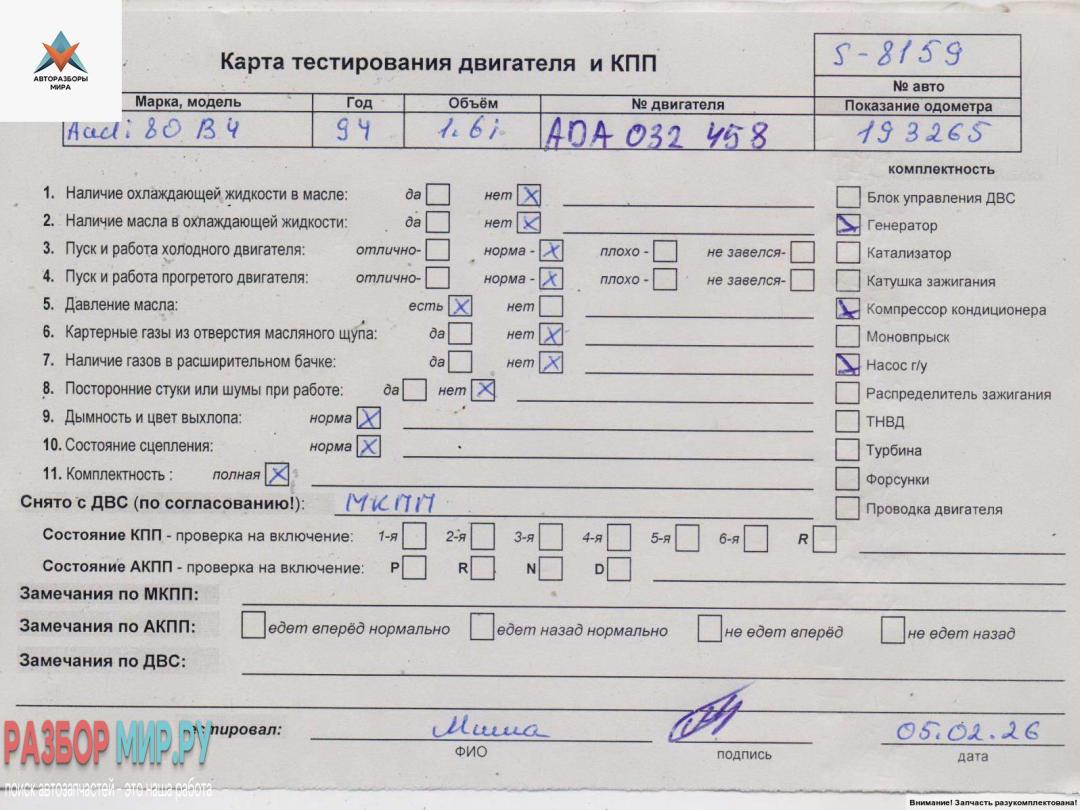 АВТОРАЗБОРЫ
МИРА
Карта тестирования двигателя и КПП
S-8159
№ авто
Марка, модель Год Объём № двигателя Показание одометра
Audi 80 B4 94 1.6i ADA 032 458 193265
комплектность
1. Наличие охлаждающей жидкости в масле: да нет X
Блок управления ДВС
2. Наличие масла в охлаждающей жидкости: да нет X
Генератор
3. Пуск и работа холодного двигателя: отлично- норма - X плохо - не завелся-
Катализатор
4. Пуск и работа прогретого двигателя: отлично- норма - X плохо - не завелся-
Катушка зажигания
5. Давление масла: есть X нет
Компрессор кондиционера
6. Картерные газы из отверстия масляного щупа: да нет X
Моновпрыск
7. Наличие газов в расширительном бачке: да нет X
Насос г/у
8. Посторонние стуки или шумы при работе: да нет X
Распределитель зажигания
9. Дымность и цвет выхлопа: норма X
ТНВД
10. Состояние сцепления: норма X
Турбина
11. Комплектность : полная X
Форсунки
Снято с ДВС (по согласованию!): МКПП
Проводка двигателя
Состояние КПП - проверка на включение: 1-я 2-я 3-я 4-я 5-я 6-я R
Состояние АКПП - проверка на включение: P R N D
Замечания по МКПП:
Замечания по АКПП: едет вперёд нормально едет назад нормально не едет вперёд не едет назад
Замечания по ДВС:
стировал: Миша 05.02.26
ФИО подпись дата
РАЗБОР МИР.РУ
поиск автозапчастей - это наша работа
Внимание! Запчасть разукомплектована!